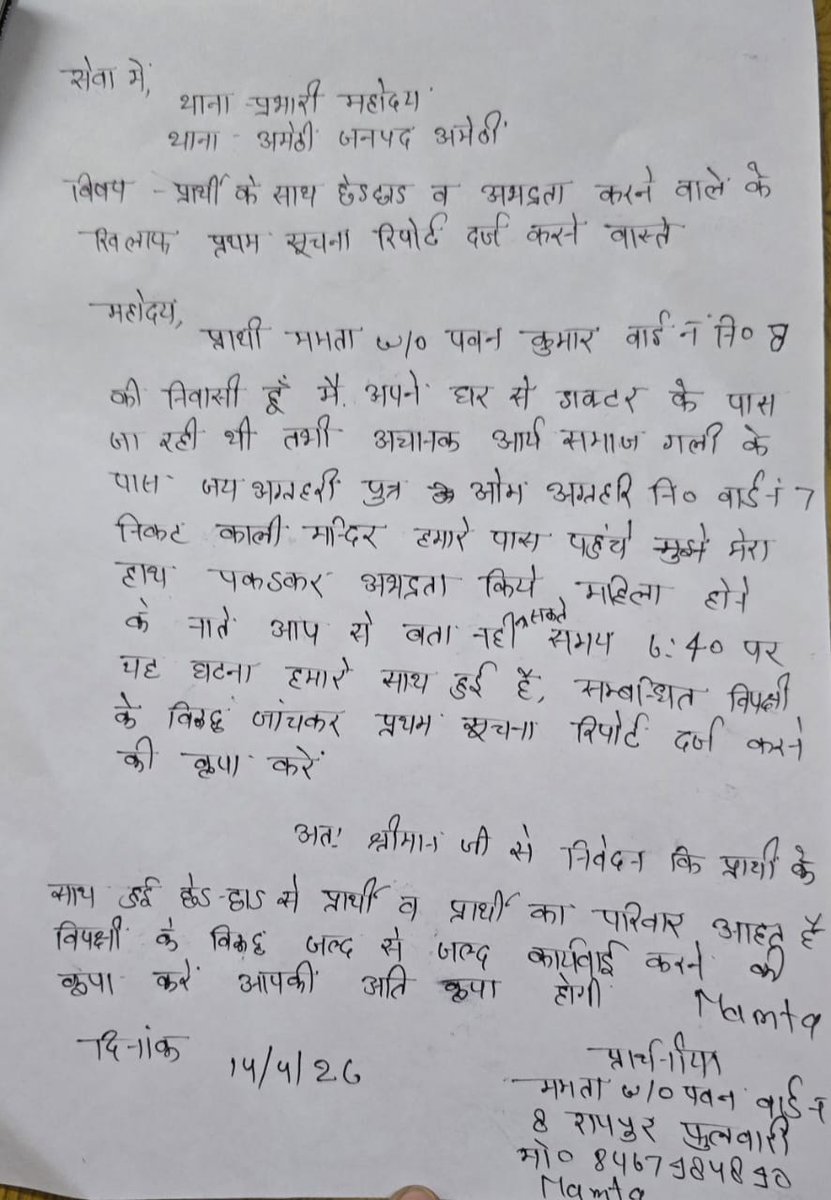 सेवा में,
थाना प्रभारी महोदय
थाना - अमेठी जनपद अमेठी
विषय - प्रार्थी के साथ छेडछाड व अभद्रता करने वाले के
खिलाफ प्रथम सूचना रिपोर्ट दर्ज करने वास्ते
महोदय,
प्रार्थी ममता w/o पवन कुमार वार्ड नं नि० 8
की निवासी हूँ मै. अपने घर से डाक्टर के पास
जा रही थी तभी अचानक आर्य समाज गली के
पास जय अग्रहरी पुत्र ओम अग्रहरि नि० वार्ड नं 7
निकट काली मन्दिर हमारे पास पहुंचे मुझे मेरा
हाथ पकडकर अभद्रता किये महिला होने
के नाते आप से बता नही सकते समय 6:40 पर
यह घटना हमारे साथ हुई है, सम्बन्धित विपक्षी
के विरुद्ध जांचकर प्रथम सूचना रिपोर्ट दर्ज करने
की कृपा करें
अतः श्रीमान जी से निवेदन कि प्रार्थी के
साथ हुई छेड-छाड से प्रार्थी व प्रार्थी का परिवार आहत है
विपक्षी के विरुद्ध जल्द से जल्द कार्यवाई करने की
कृपा करें आपकी अति कृपा होगी
Mamta
दिनांक 14/4/26
ममता w/o पवन वार्ड नं
8 रायपुर फुलवारी
मो० 8467984890
Mamta